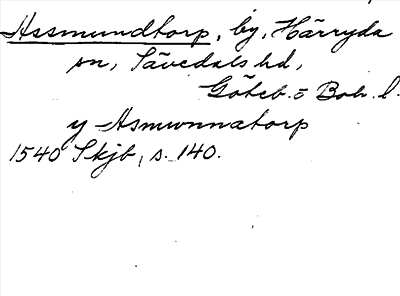 Assmundtorp, by, Härryda
sn, Sävedals hd,
Göteb. o Boh. l.
y Asmwnnatorp
1540 Skjb, s. 140.